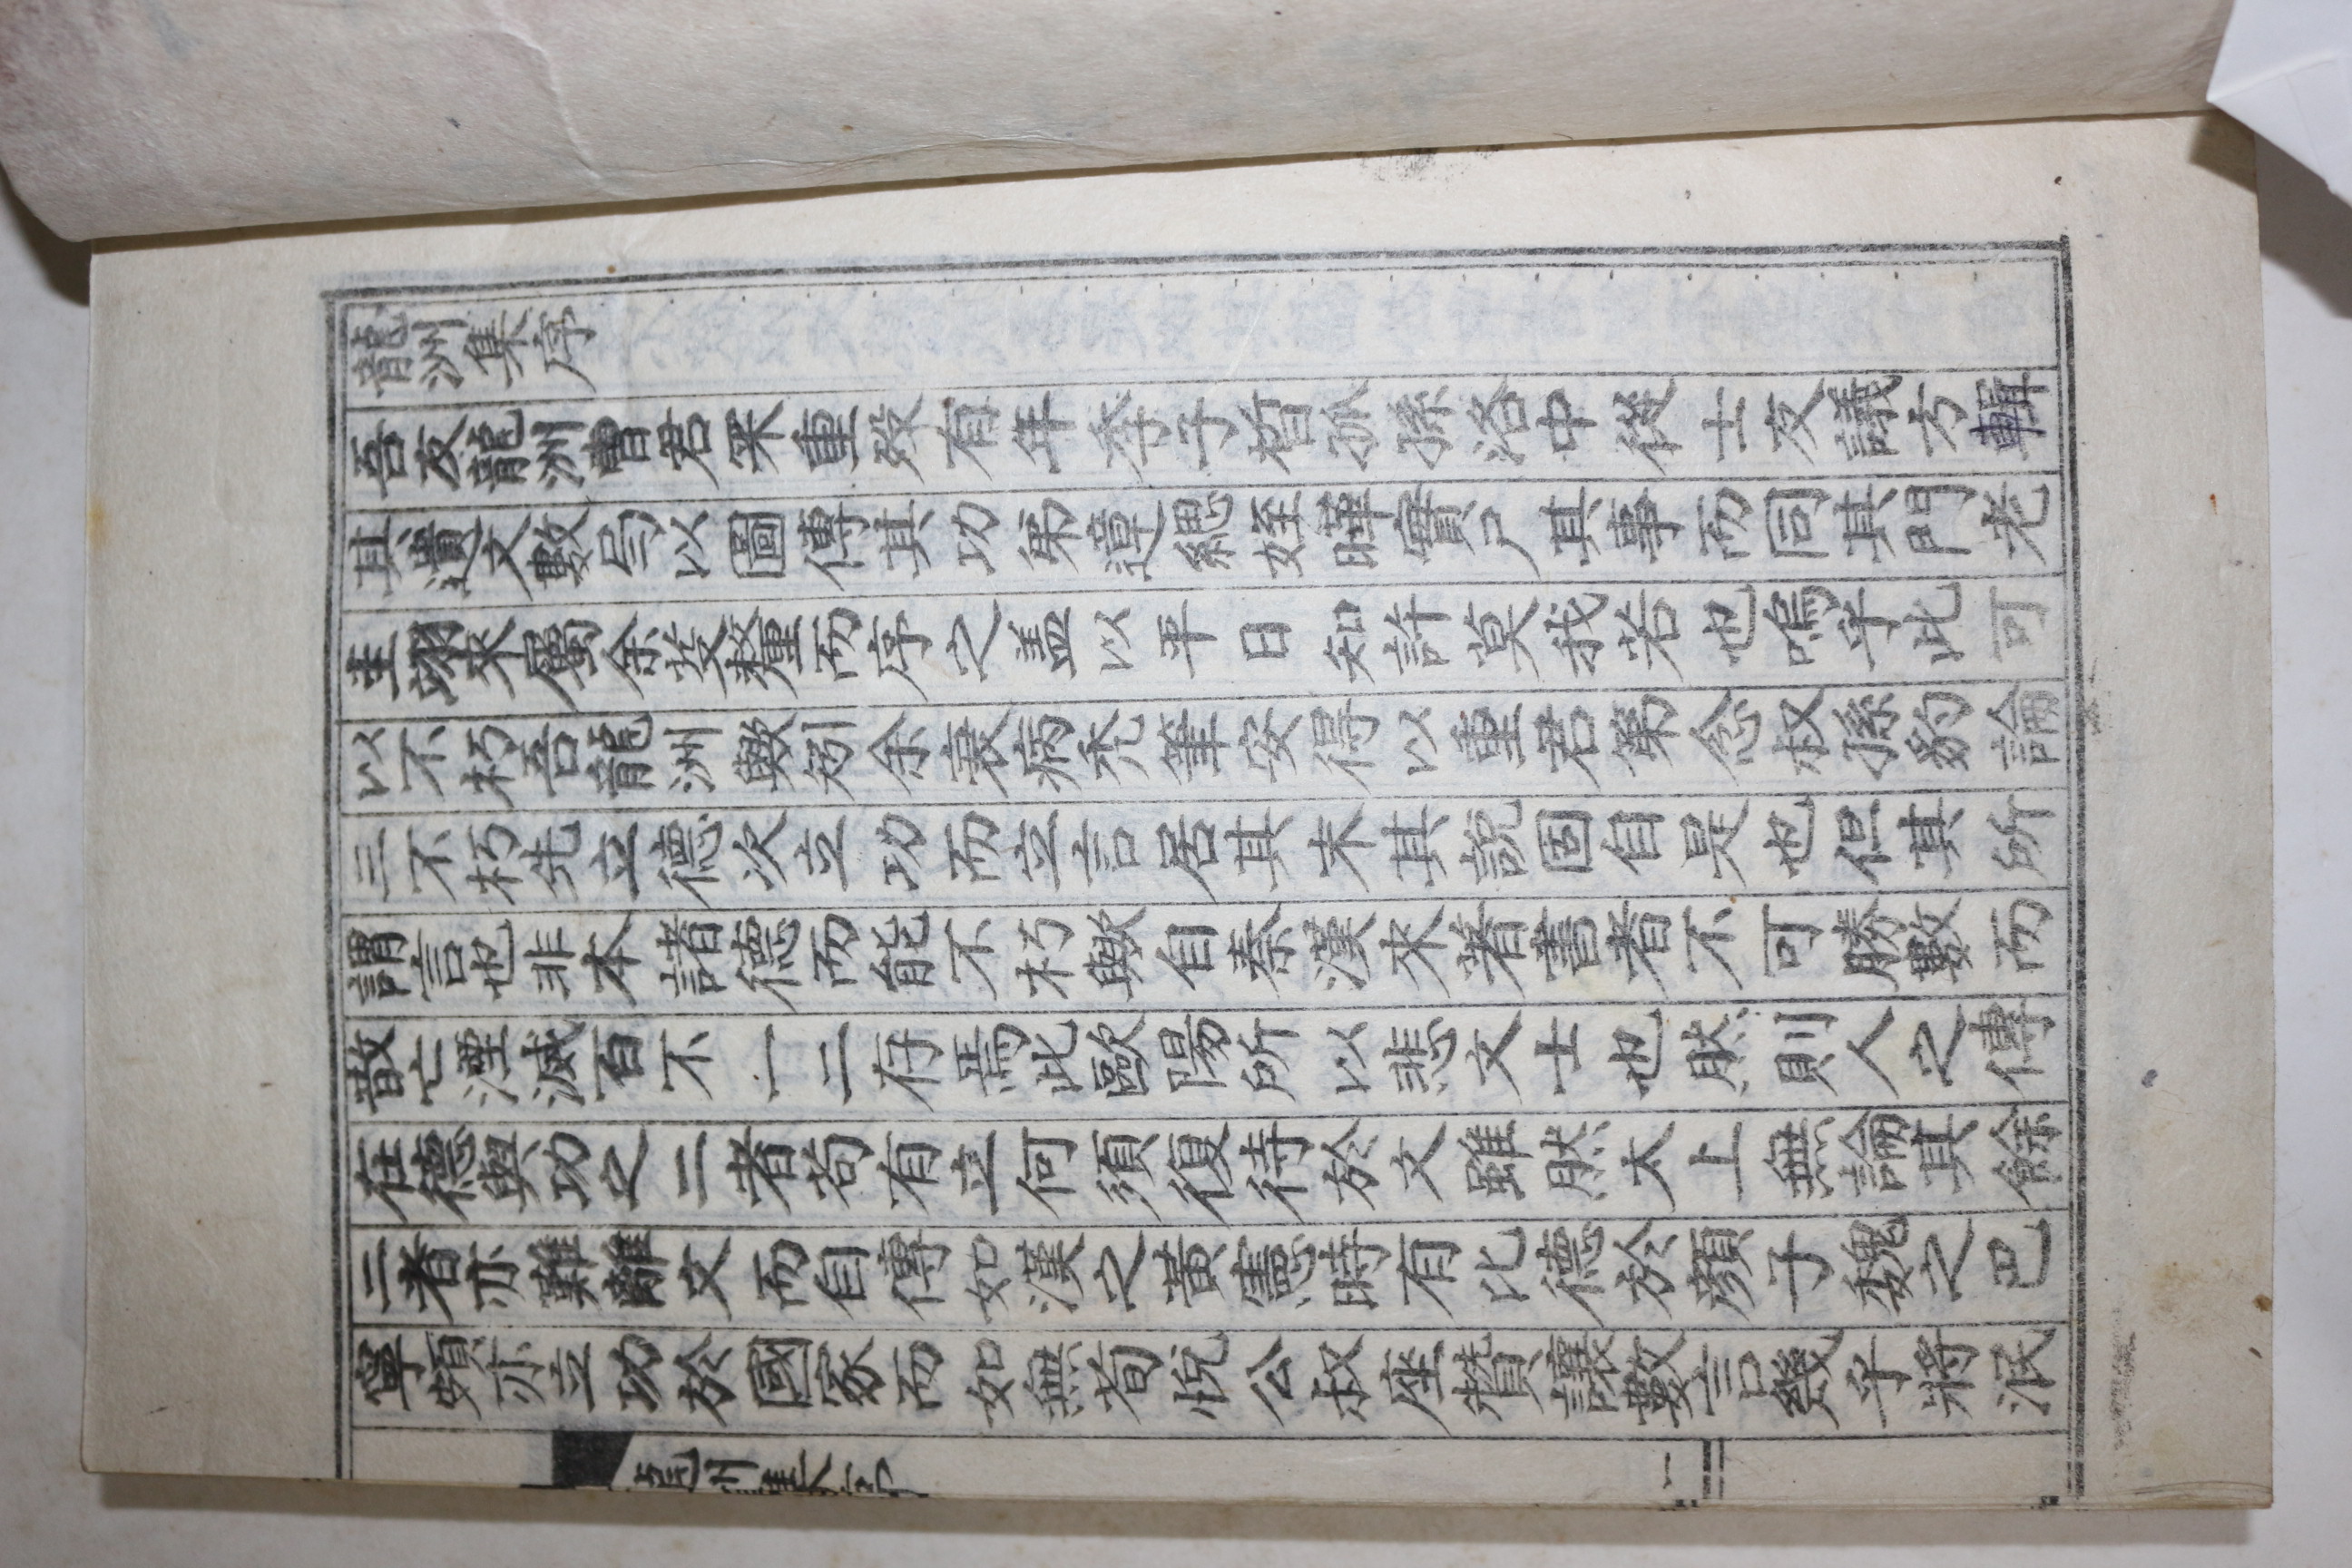 龍洲集序
吾友龍洲曺君采重歿有年季子晳孤孫洛中從士友議方輯
其遺文數局以圖傳其功弟達緦姪曄實尸其事而同其門老
圭翊來屬余芟釐而序之盖以平日知許莫我若也嗚乎此可
以不朽吾龍洲歟矧余衰病禿筆安得以重君第念叔孫豹論
三不朽先立德次立功而立言居其末其說固自是也但其所
謂言也非本諸德而能不朽歟自秦漢來著書者不可勝數而
散亡湮滅百不一二存焉此歐陽所以悲文士也然則人之傳
在德與功之二者苟有立何須復待於文雖然太上無論其餘
二者亦難離文而自傳如漢之黃憲時有比德於顔子魏之巴
寧頗亦立功於國家而如無荀悅公叔座贊讓數言幾乎將泯
龍洲集序
一